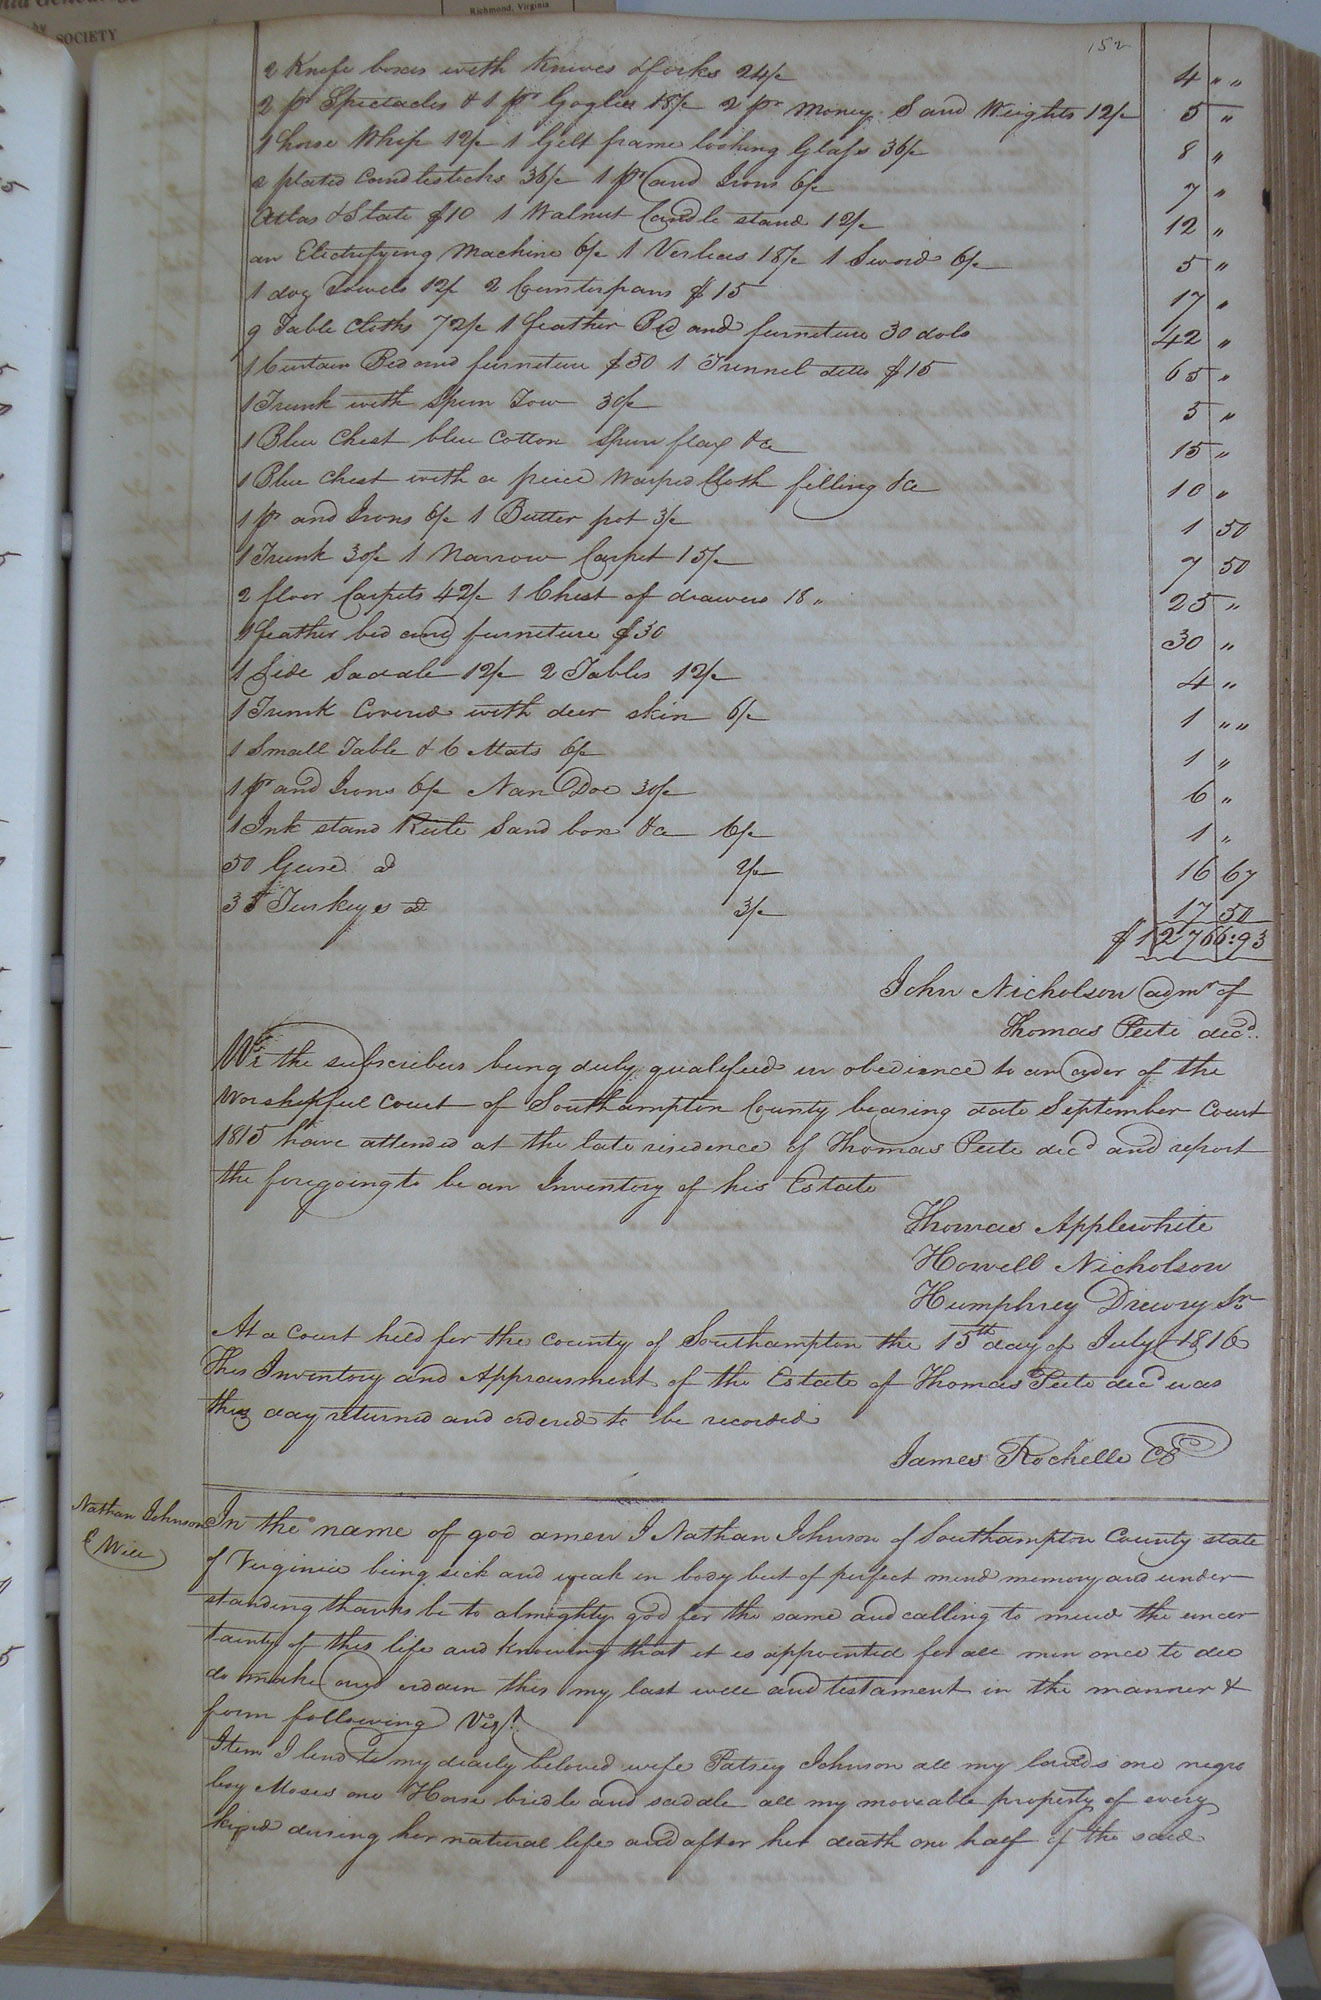 Richmond, Virginia
SOCIETY
152
2 Knife boxes with Knives & forks 24/ 4 " "
2 pr Spectacles & 1 pr Goglies 18/ 2 pr Money Sand Weights 12/ 5 "
1 horse Whip 12/ 1 Gilt frame looking Glass 36/ 8 "
2 plated Candlesticks 36/ 1 pr and Irons 6/ 7 "
Atlas & State $10 1 Walnut Candle stand 12/ 12 "
an Electrifying Machine 6/ 1 18/ 1 Sword 6/ 5 "
1 doz Towels 12/ 2 Counterpans $15 17 "
9 Table Cloths 72/ 1 feather Bed and furniture 30 dols 42 "
1 Curtain Bed and furniture $50 1 Trunnel ditto $15 65 "
1 Trunk with Spun Tow 30/ 5 "
1 Blue Chest blue Cotton Spun flax &c 15 "
1 Blue Chest with a peice Warped Cloth filling &c 10 "
1 pr and Irons 6/ 1 Butter pot 3/ 1 50
1 Trunk 30/ 1 Narrow Carpet 15/ 7 50
2 floor Carpets 42/ 1 Chest of drawers 18 " 25 "
1 feather bed and furniture $30 30 "
1 Side Saddle 12/ 2 Tables 12/ 4 "
1 Trunk Covered with deer skin 6/ 1 " "
1 Small Table & 6 Mats 6/ 1 "
1 pr and Irons 6/ Nan Doe 30/ 6 "
1 Ink stand Rule Sand box &c 6/ 1 "
50 Geese a 2/ 16 67
35 Turkeys a 3/ 17 50
$12766:93
John Nicholson admr of
Thomas Peete decd.
We the subscribers being duly qualified in obedience to an order of the
Worshipful Court of Southampton County bearing date September Court
1815 have attended at the late residence of Thomas Peete decd and report
the foregoing to be an Inventory of his Estate
Thomas Applewhite
Howell Nicholson
Humphrey Drewry Sr
At a Court held for the County of Southampton the 15th day of July 1816
This Inventory and Appraisment of the Estate of Thomas Peete decd was
this day returned and ordered to be recorded
James Rochelle CC
Nathan Johnson
& Will
In the name of god amen I Nathan Johnson of Southampton County state
of Virginia being sick and weak in body but of perfect mind memory and under
standing thanks be to almighty god for the same and calling to mind the uncer
tainty of this life and knowing that it is appointed for all men once to die
do make and ordain this my last will and testament in the manner &
form following Vizt.
Item I lend to my dearly beloved wife Patsey Johnson all my lands one negro
boy Moses one Horse bridle and saddle all my moveable property of every
kind during her natural life and after her death one half of the said